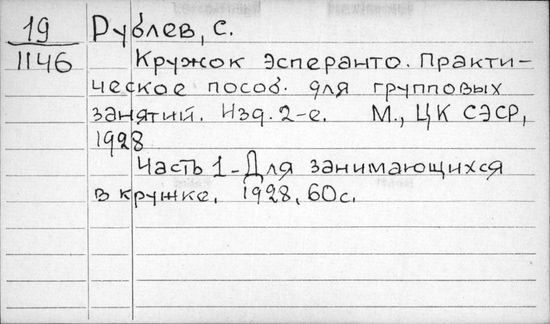 19
1146
Рублев, С.
Кружок Эсперанто. Практи-
ческое пособ. для групповых
занятий. Изд. 2-е. М., ЦК СЭСР,
1928
Часть 1 - Для занимающихся
в кружке. 1928, 60 с.